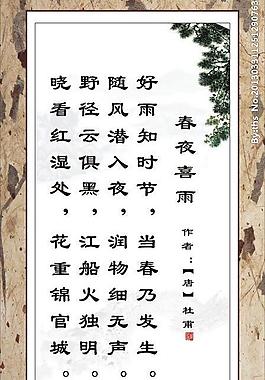 春夜喜雨
作者：【唐】杜甫
好雨知时节，当春乃发生。
随风潜入夜，润物细无声。
野径云俱黑，江船火独明。
晓看红湿处，花重锦官城。